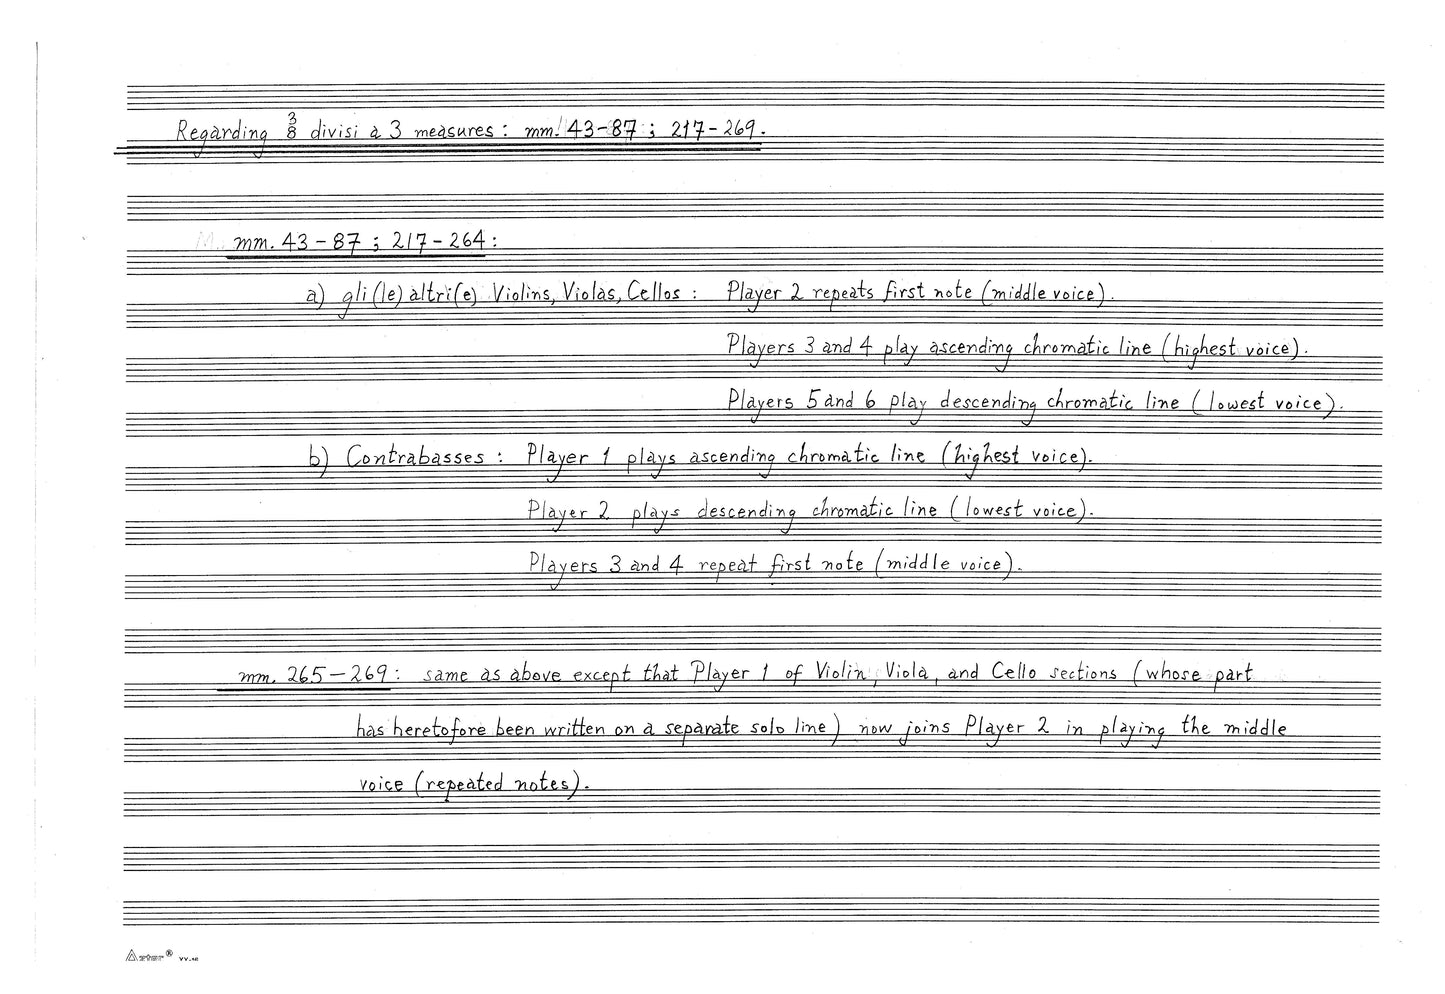 Regarding 3/8 divisi à 3 measures: mm. 43-87; 217-269.
mm. 43-87; 217-264:
a) gli (le) altri(e) Violins, Violas, Cellos: Player 2 repeats first note (middle voice).
Players 3 and 4 play ascending chromatic line (highest voice).
Players 5 and 6 play descending chromatic line (lowest voice).
b) Contrabasses: Player 1 plays ascending chromatic line (highest voice).
Player 2 plays descending chromatic line (lowest voice).
Players 3 and 4 repeat first note (middle voice).
mm. 265-269: same as above except that Player 1 of Violin, Viola, and Cello sections (whose part
has heretofore been written on a separate solo line) now joins Player 2 in playing the middle
voice (repeated notes).